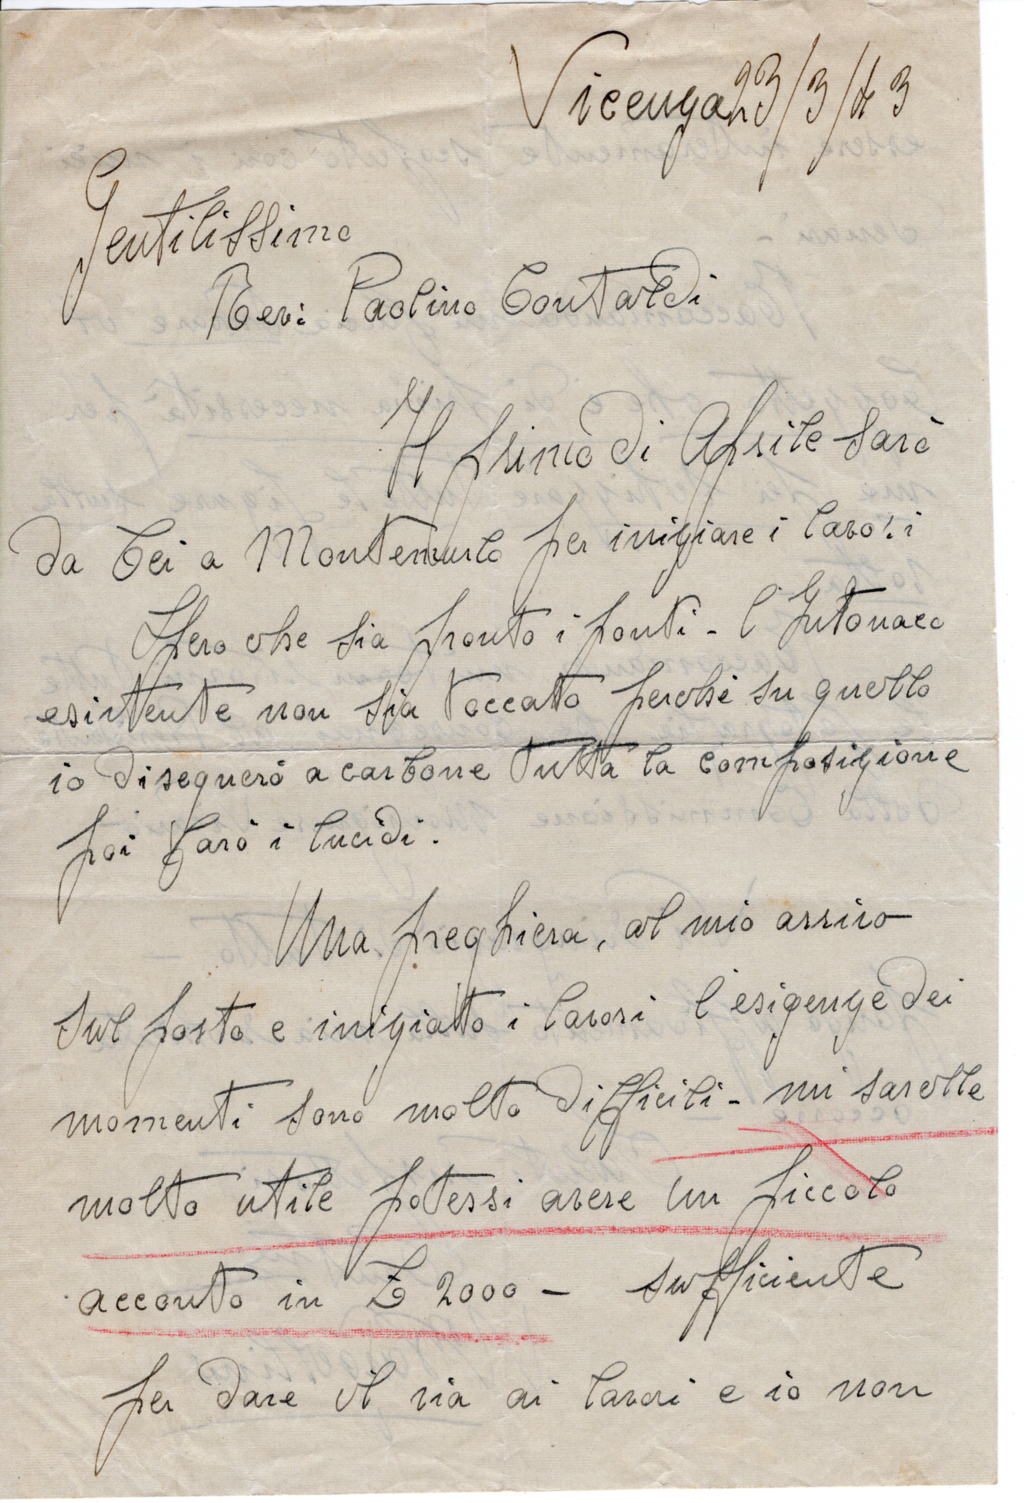 Vicenza 23/3/43
Gentilissimo
Rev: Paolino Contaldi
Il primo di Aprile sarò
da Lei a Montemurlo per iniziare i lavori
Spero che sia pronto i ponti - l'Intonaco
esistente non sia toccato perchè su quello
io disegnerò a carbone tutta la composizione
poi farò i lucidi.
Una preghiera, al mio arrivo
sul posto e iniziatto i lavori l'esigenze dei
momenti sono molto difficili - mi sarebbe
molto utile potessi avere un piccolo
acconto in £ 2000 - sufficiente
per dare il via ai lavori e io non